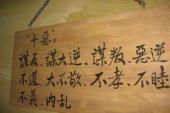 “十恶：
谋反、谋大逆、谋叛、恶逆
不道、大不敬、不孝、不睦
不义、内乱